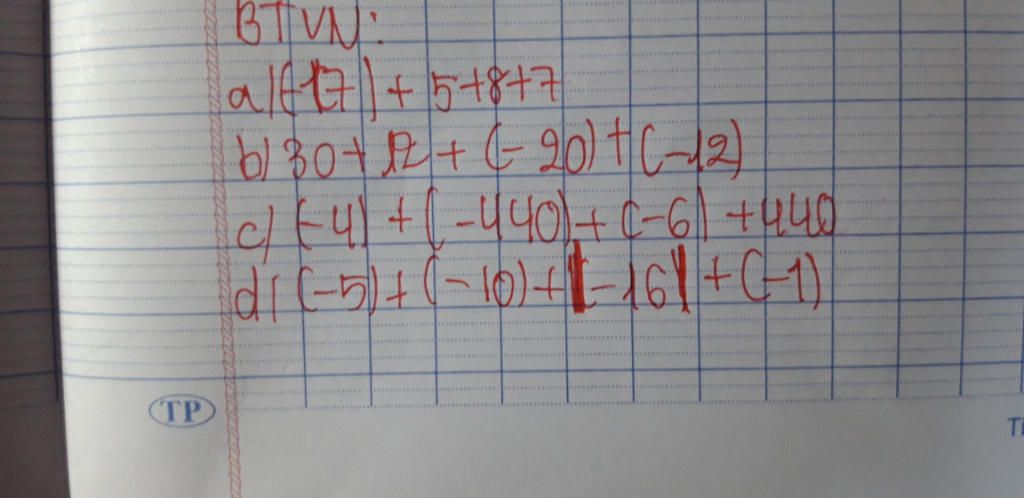 BTVN:
a) (-17) + 5+8+7
b) 30+ 12 + (-20) + (-12)
c) (-4) + (-440) + (-6) + 440
d) (-5) + (-10) + |-16| + (-1)
TP